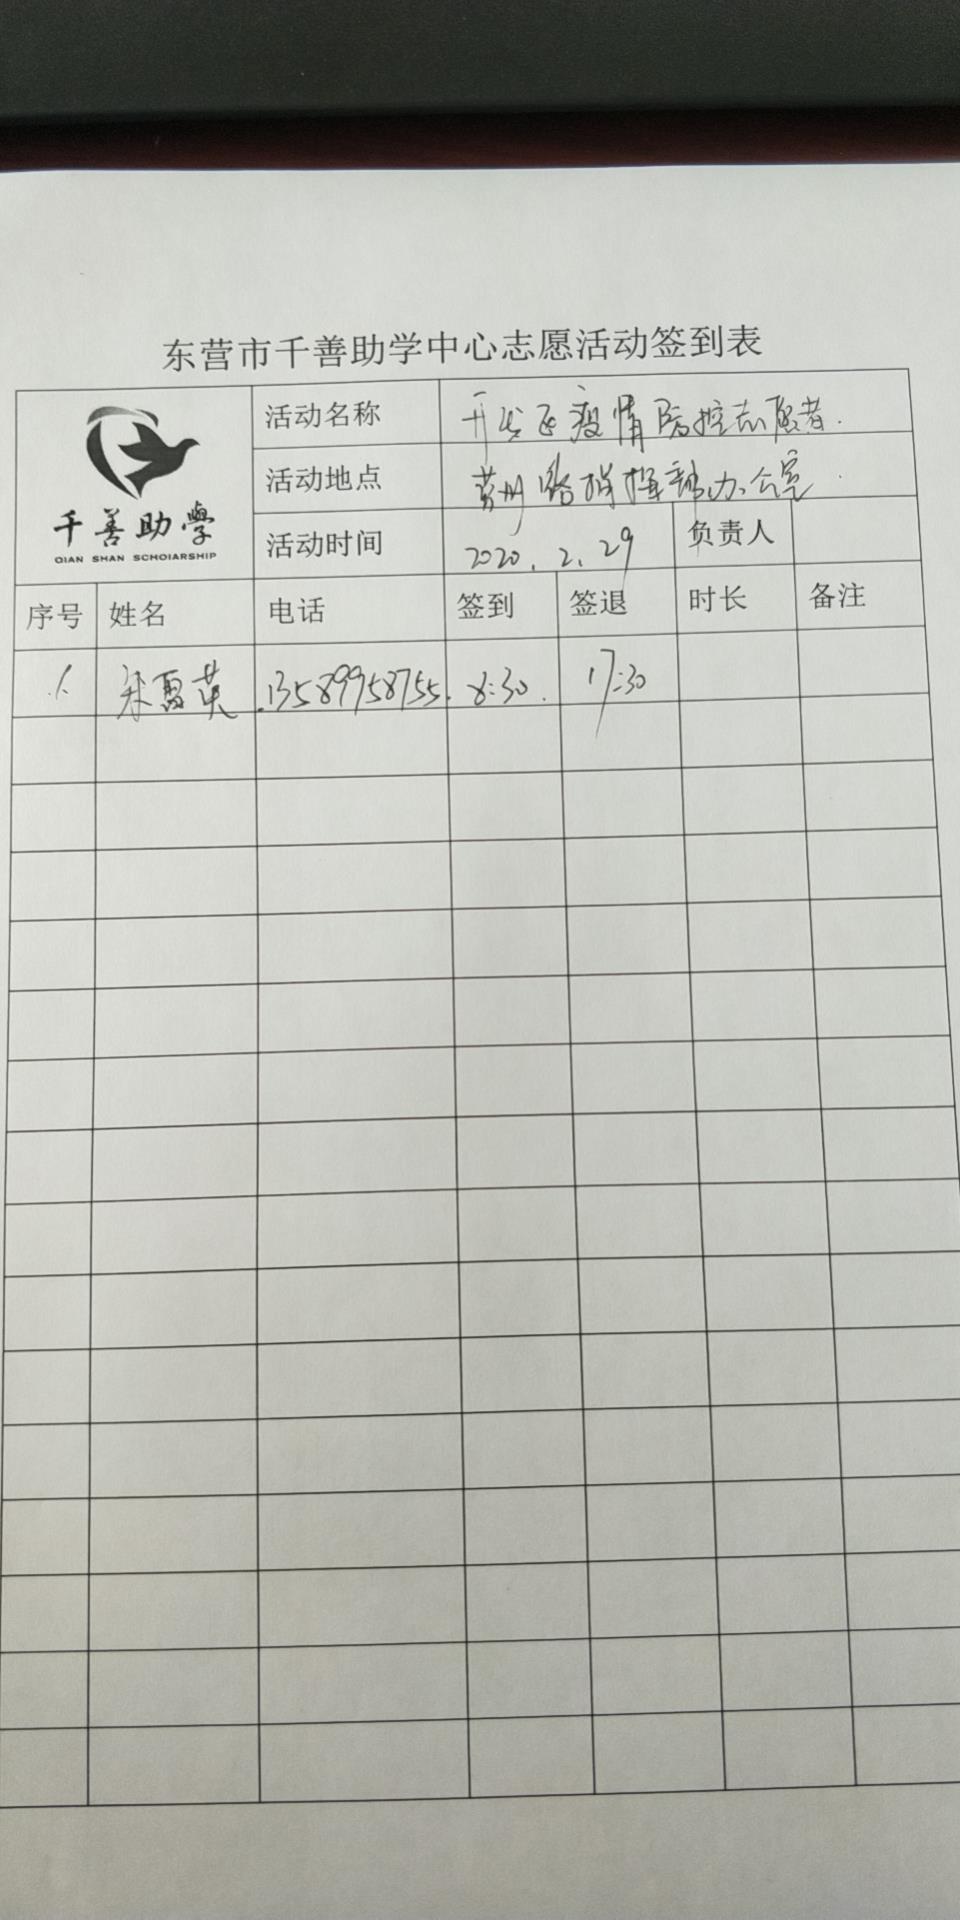 东营市千善助学中心志愿活动签到表
千善助學
QIAN SHAN SCHOIARSHIP
活动名称 开发区疫情防控志愿者.
活动地点 州路指挥部办公室
活动时间 2020.2.29 负责人
序号 姓名 电话 签到 签退 时长 备注
1. 英 13589958755. 8:30. 17:30